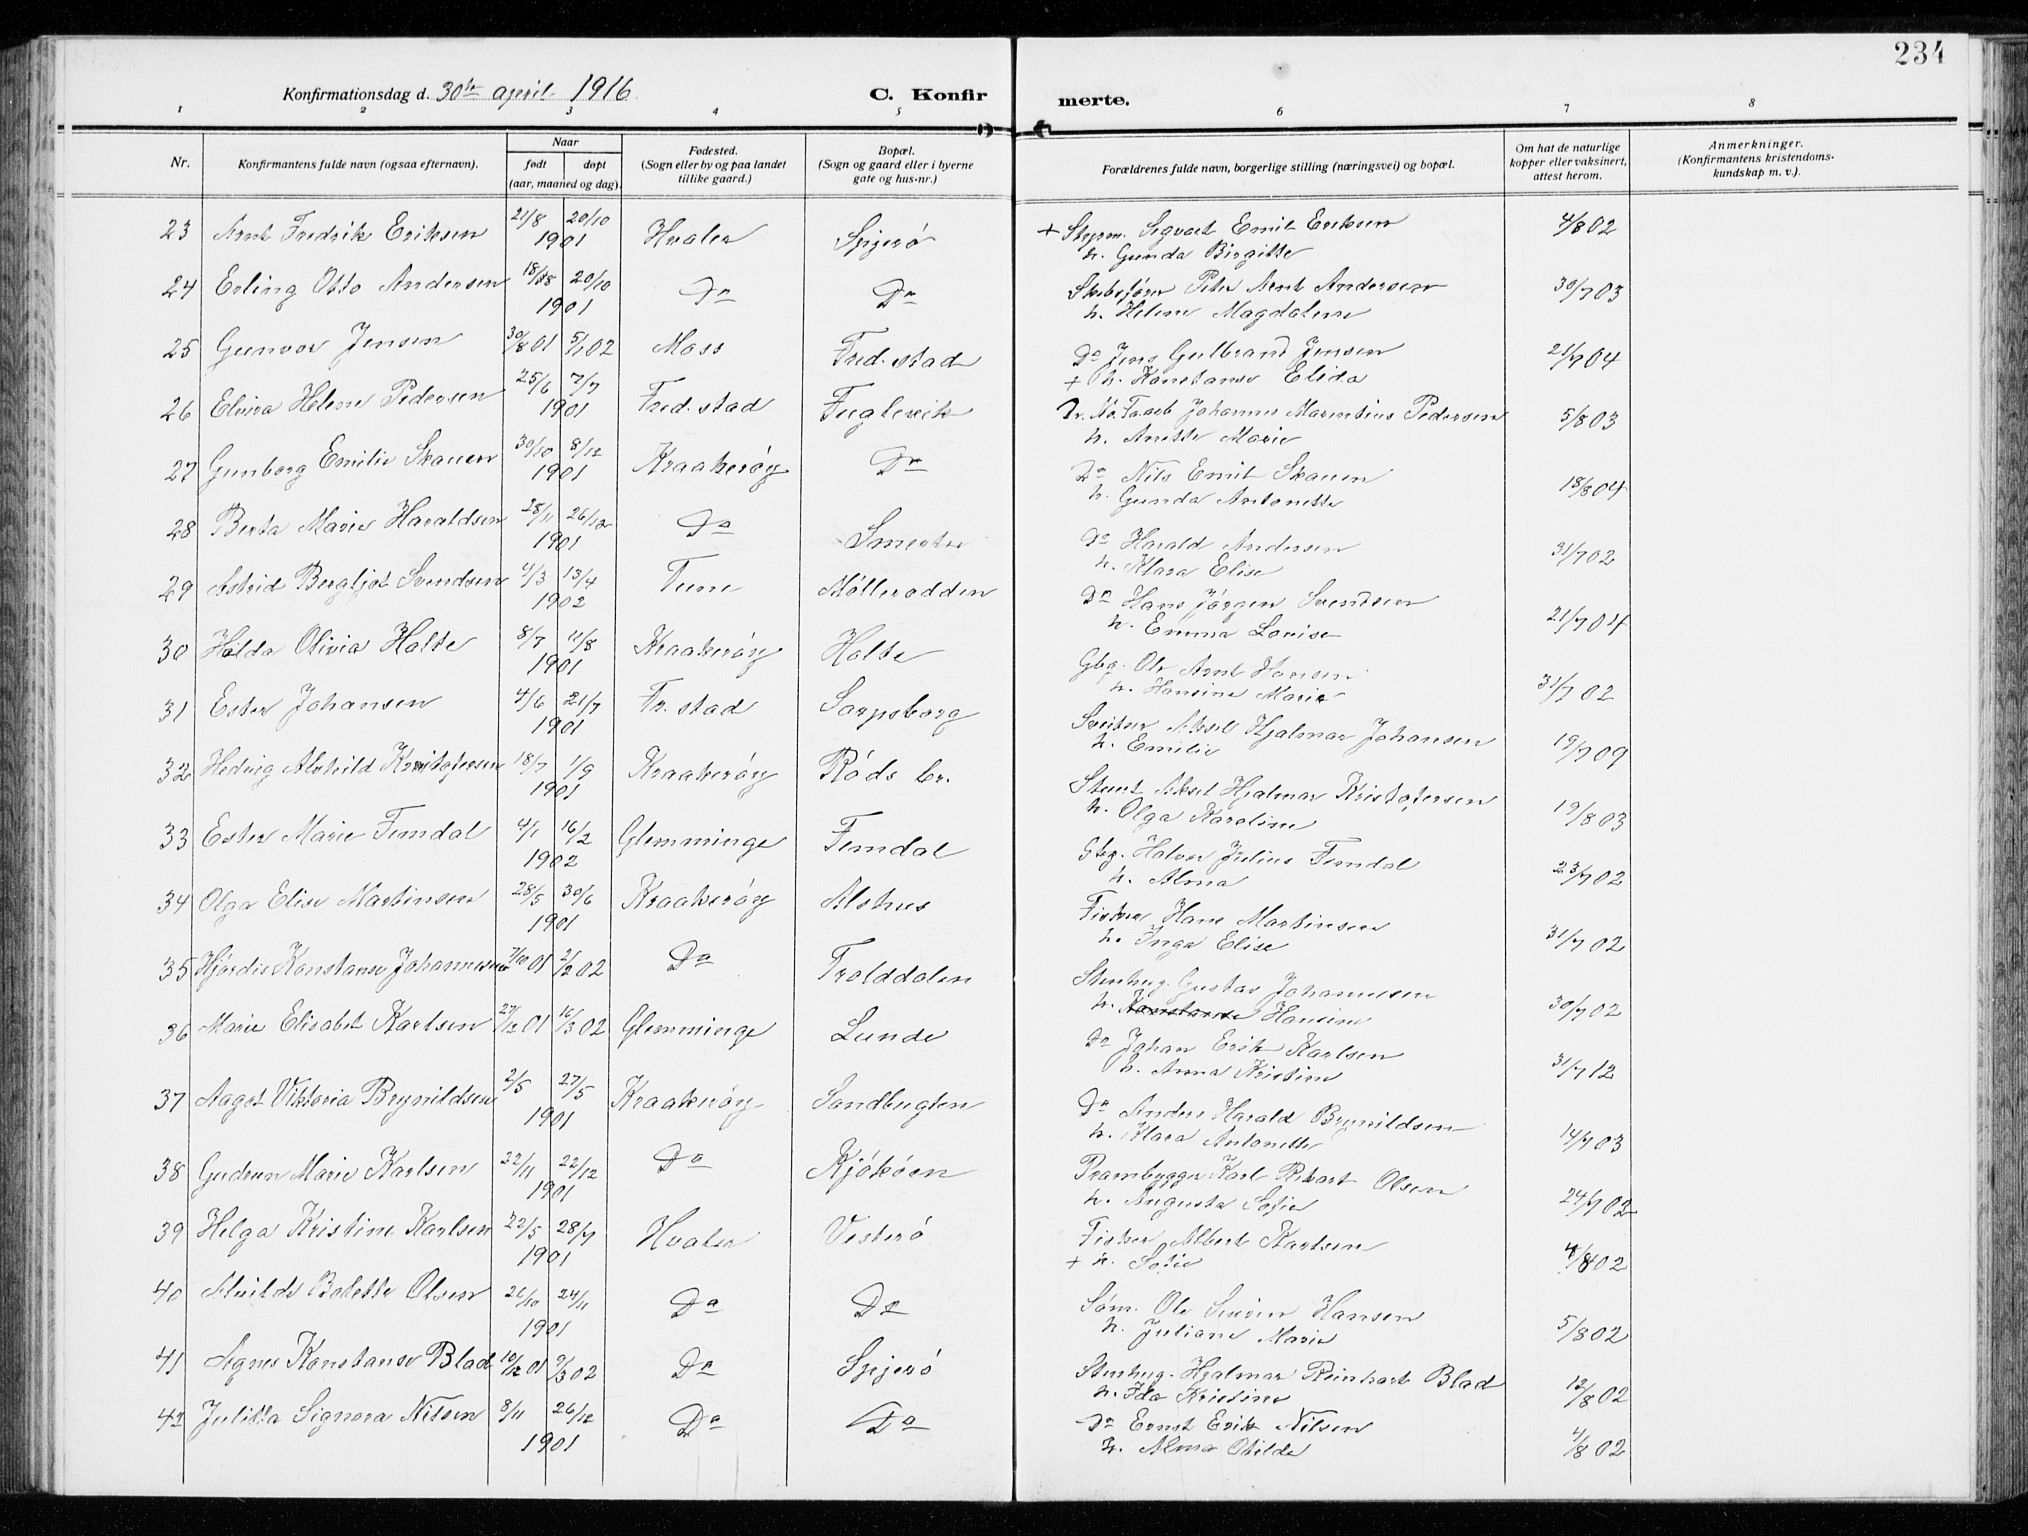 234
Konfirmationsdag d. 30te april 1916 C. Konfirmerte.
1 2 3 4 5 6 7 8
Nr. | Konfirmantens fulde navn (ogsaa efternavn). | Naar født døpt (aar, maaned og dag) | Fødested. (Sogn eller by og paa landet tillike gaard.) | Bopæl. (Sogn og gaard eller i byerne gate og hus-nr.) | Forældrenes fulde navn, borgerlige stilling (næringsvei) og bopæl. | Om hat de naturlige kopper eller vaksinert, attest herom. | Anmerkninger. (Konfirmantens kristendomskundskap m. v.).
23 Arnt Fredrik Eriksen 21/8 20/10 1901 Hvaler Spjerö + Styrm. Sigvart Emil Eriksen 4/8 02
h. Gunda Birgitte
24 Erling Otto Andersen 20/10 1901 Do Do Skibsfører Peter Arnt Andersen 30/7 03
h. Helene Magdalene
25 Gunvor Jensen 30/8 01 5/1 02 Moss Fred.stad Do Jens Gulbrand Jensen 21/7 04
+ h. Konstanse Elida
26 Elvira Helene Pedersen 25/6 7/7 1901 Fred.stad Fuglevik Johannes Marentius Pedersen 5/8 03
h. Anette Marie
27 Gunborg Emilie Skauen 30/10 8/12 1901 Kraakeröy Do Do Nils Emil Skauen 18/8 04
h. Gunda Antonette
28 Berta Marie Haraldsen 28/11 26/12 1901 Do Smerter Do Harald Andersen 31/7 02
h. Klara Elise
29 Astrid Bergljot Svendsen 4/3 13/4 1902 Tune Mölleradden Do Hans Jörgen Svendsen 21/7 04
h. Emma Lovise
30 Hilda Olivia Holte 8/7 11/8 1901 Kraakeröy Holte Gbg. Ole Arnt Hansen 31/7 02
h. Hansine Marie
31 Ester Johansen 4/6 21/7 1901 Fr.stad Sarpsborg Sveitser Aksel Hjalmar Johansen 19/7 09
h. Emilie
32 Hedvig Alvhild Kristofersen 18/7 1/9 1901 Kraakeröy Röds br. Stenh. Aksel Hjalmar Kristofersen 19/8 03
h. Olga Karoline
33 Ester Marie Femdal 4/1 16/2 1902 Glemminge Femdal Gbg. Halvor Julius Femdal 23/7 02
h. Alma
34 Olga Elise Martinsen 28/5 30/6 1901 Kraakeröy Alshus Fisker Hans Martinsen 31/7 02
h. Inga Elise
35 Hjördis Konstanse Johannesen 7/10 01 2/2 02 Do Trolddalen Stenhug. Gustav Johannesen 30/7 02
h. Konstanse Hansine
36 Marie Elisabet Karlsen 27/12 01 16/3 02 Glemminge Lunde Do Johan Erik Karlsen 31/7 12
h. Anna Kristine
37 Aagot Viktoria Brynildsen 2/5 27/5 1901 Kraakeröy Sandbugten Do Anders Harald Brynildsen 14/7 03
h. Klara Antonette
38 Gudrun Marie Karlsen 22/11 22/12 1901 Do Kjököen Prambygger Karl Rikart Olsen 24/7 02
h. Augusta Sofie
39 Helga Kristine Karlsen 22/5 28/7 1901 Hvaler Vesterö Fisker Albert Karlsen 4/8 02
+ h. Sofie
40 Alvilde Bolette Olsen 26/10 24/11 1901 Do Do Söm. Ole Severin Hansen 5/8 02
h. Juliane Marie
41 Agnes Konstanse Blad 10/12 01 9/3 02 Do Spjerö Stenhug. Hjalmar Reinhart Blad 12/8 02
h. Ida Kristine
42 Julitta Signora Nilsen 8/11 26/12 1901 Do Do Do Ernst Erik Nilsen 4/8 02
h. Alma Otilde